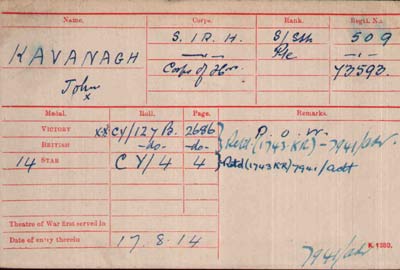 Name. Corps. Rank. Regtl. No.
KAVANAGH S. I R. H. S/Sth 509
—„— Pte —„—
John Corps of Hrs. 73593.
x
Medal. Roll. Page. Remarks.
VICTORY xx CY/127 B. 2686 P. o. w.
BRITISH -do- -do- Retd.(1743·KR)-7941/adt.
14 STAR CY/4 4 Retd(1743KR)7941/adt
Theatre of War first served in
Date of entry therein 17. 8. 14
7941/adt K. 1380.